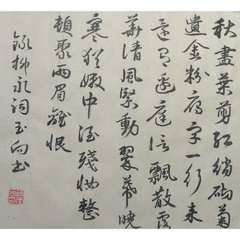 秋盡葉剪紅綃砌菊
遺金粉雁字一行來
還有邊庭信飄散露
華清風緊動翠幕曉
寒猶嫩中酒殘妝整
頓聚兩眉離恨
錄柳永詞玉向書